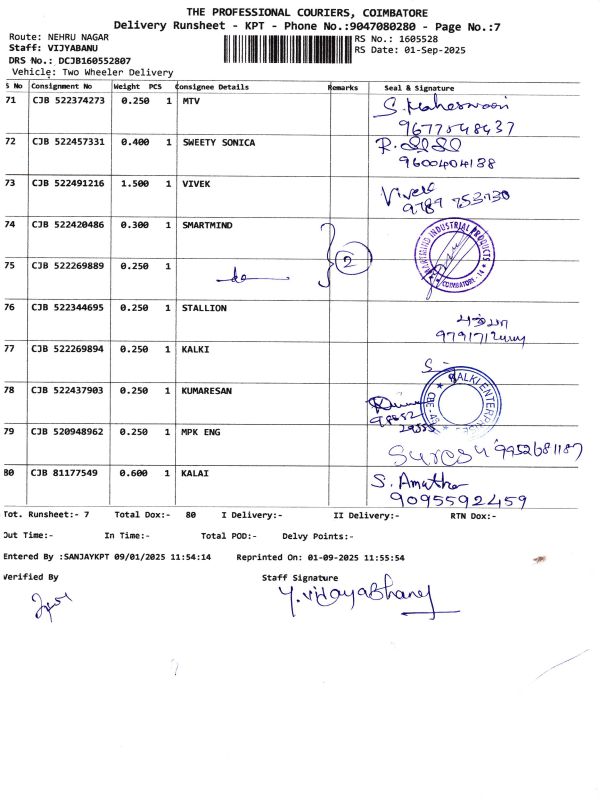 THE PROFESSIONAL COURIERS, COIMBATORE
Delivery Runsheet - KPT - Phone No.:9047080280 - Page No.:7
Route: NEHRU NAGAR
RS No.: 1605528
Staff: VIJYABANU
RS Date: 01-Sep-2025
DRS No.: DCJB160552807
Vehicle: Two Wheeler Delivery
S No Consignment No Weight PCS Consignee Details Remarks Seal & Signature
71 CJB 522374273 0.250 1 MTV S. Maheswari
72 CJB 522457331 0.400 1 SWEETY SONICA
9600404138
73 CJB 522491216 1.500 1 VIVEK Vivek
9789 753730
74 CJB 522420486 0.300 1 SMARTMIND
2
SMARTMIND INDUSTRIAL PRODUCTS
* COIMBATORE - 14 *
75 CJB 522269889 0.250 1
76 CJB 522344695 0.250 1 STALLION
77 CJB 522269894 0.250 1 KALKI
KALKI ENTERPRISE
78 CJB 522437903 0.250 1 KUMARESAN
79 CJB 520948962 0.250 1 MPK ENG
80 CJB 81177549 0.600 1 KALAI S. Amutha
9095592459
Tot. Runsheet:- 7 Total Dox:- 80 I Delivery:- II Delivery:- RTN Dox:-
Out Time:- In Time:- Total POD:- Delvy Points:-
Entered By :SANJAYKPT 09/01/2025 11:54:14 Reprinted On: 01-09-2025 11:55:54
Verified By Staff Signature
Y. Vijaya Bhanu